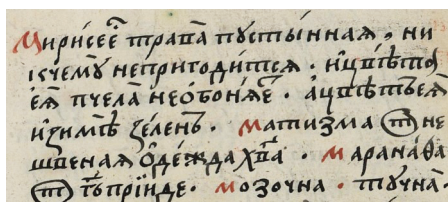 Мирисеѐ трава̀ пꙋсты́ннаꙗ, ни
кчемꙋ̀ непригоди́тсѧ. и҆цвѣто̀
еѧ̀ пчела̀ неѡ҆боня́е. а҆цвѣтъеѧ
и҆зимѣ̀ зе́ленъ. матизма т не
швенаꙗ ѻ҆де́жда хв҃а. марана́ѳа
т гь҃ прїи́де. мозочна. тꙋчна̀.